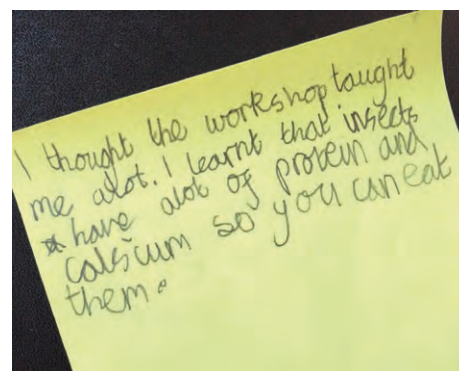 I thought the workshop taught
me alot. I learnt that insects
have alot of protein and
calsium so you can eat
them.